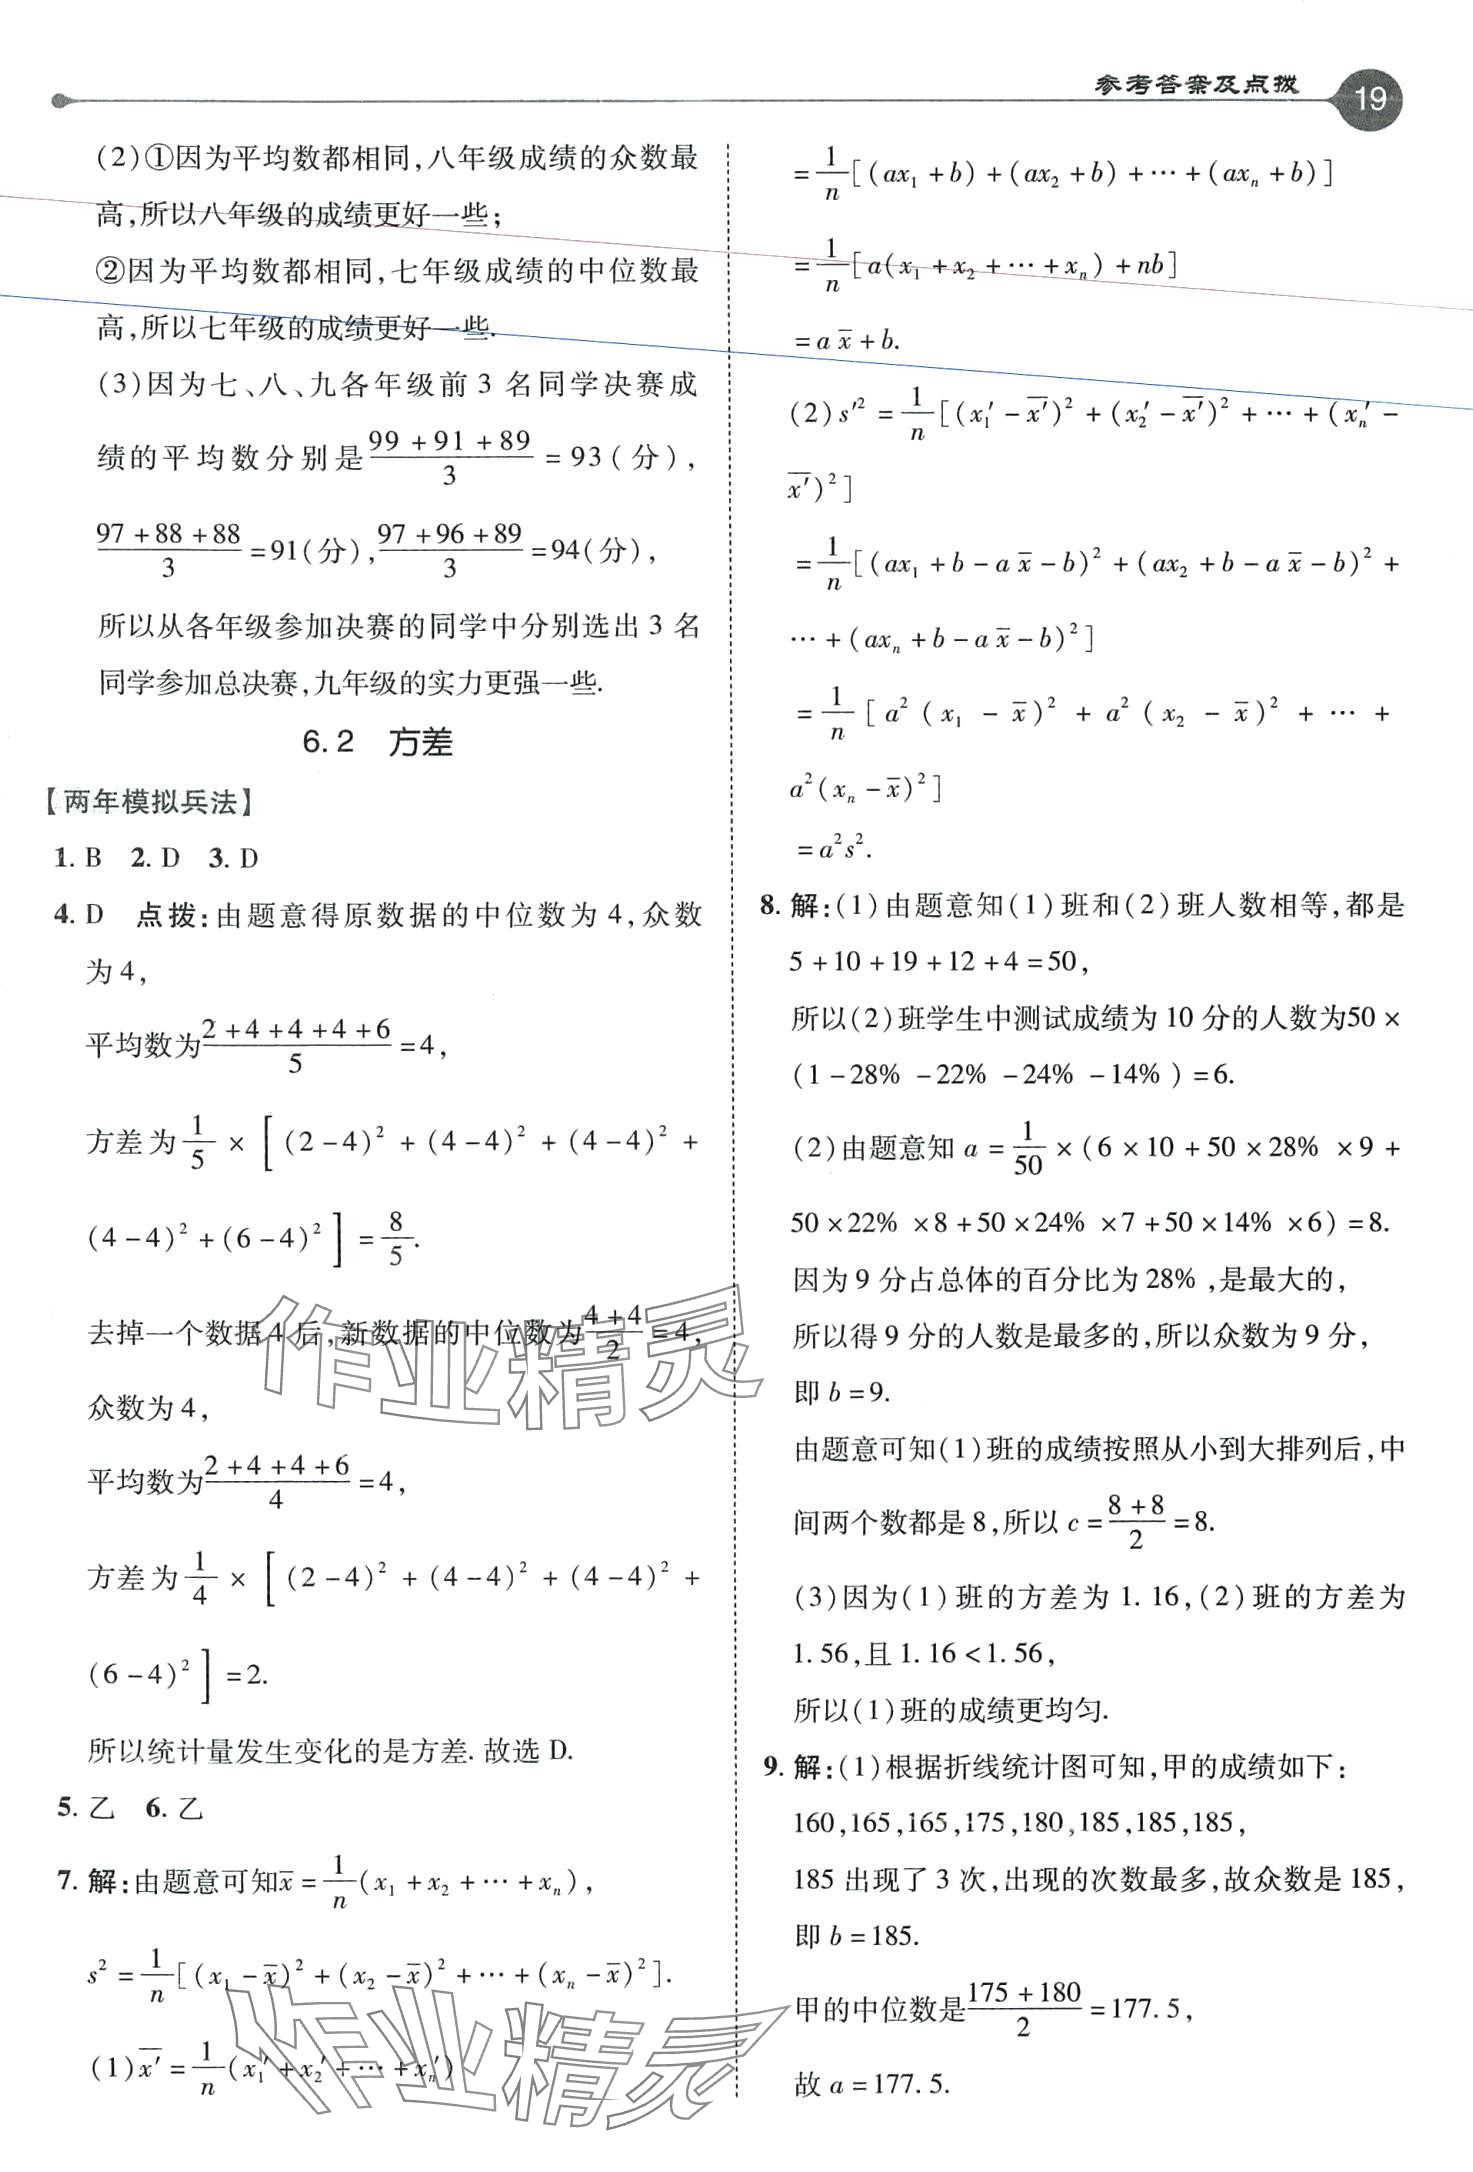 参考答案及点拨
19
(2)①因为平均数都相同,八年级成绩的众数最
高,所以八年级的成绩更好一些;
②因为平均数都相同,七年级成绩的中位数最
高,所以七年级的成绩更好一些.
(3)因为七、八、九各年级前 3 名同学决赛成
绩的平均数分别是\frac{99+91+89}{3}=93(分),
\frac{97+88+88}{3}=91(分),\frac{97+96+89}{3}=94(分),
所以从各年级参加决赛的同学中分别选出 3 名
同学参加总决赛,九年级的实力更强一些.
6.2 方差
【两年模拟兵法】
1. B 2. D 3. D
4. D 点拨:由题意得原数据的中位数为 4,众数
为 4,
平均数为\frac{2+4+4+4+6}{5}=4,
方差为\frac{1}{5}×[(2-4)²+(4-4)²+(4-4)²+
(4-4)²+(6-4)²]=\frac{8}{5}.
去掉一个数据 4 后,新数据的中位数为\frac{4+4}{2}=4,
众数为 4,
平均数为\frac{2+4+4+6}{4}=4,
方差为\frac{1}{4}×[(2-4)²+(4-4)²+(4-4)²+
(6-4)²]=2.
所以统计量发生变化的是方差. 故选 D.
5. 乙 6. 乙
7. 解:由题意可知\bar{x}=\frac{1}{n}(x₁+x₂+…+xₙ),
s²=\frac{1}{n}[(x₁-\bar{x})²+(x₂-\bar{x})²+…+(xₙ-\bar{x})²].
(1)\overline{x'}=\frac{1}{n}(x₁'+x₂'+…+xₙ')
=\frac{1}{n}[(ax₁+b)+(ax₂+b)+…+(axₙ+b)]
=\frac{1}{n}[a(x₁+x₂+…+xₙ)+nb]
=a\bar{x}+b.
(2)s'²=\frac{1}{n}[(x₁'-\overline{x'})²+(x₂'-\overline{x'})²+…+(xₙ'-
\overline{x'})²]
=\frac{1}{n}[(ax₁+b-a\bar{x}-b)²+(ax₂+b-a\bar{x}-b)²+
…+(axₙ+b-a\bar{x}-b)²]
=\frac{1}{n}[a²(x₁-\bar{x})²+a²(x₂-\bar{x})²+…+
a²(xₙ-\bar{x})²]
=a²s².
8. 解:(1)由题意知(1)班和(2)班人数相等,都是
5+10+19+12+4=50,
所以(2)班学生中测试成绩为 10 分的人数为50×
(1-28%-22%-24%-14%)=6.
(2)由题意知 a=\frac{1}{50}×(6×10+50×28%×9+
50×22%×8+50×24%×7+50×14%×6)=8.
因为 9 分占总体的百分比为 28%,是最大的,
所以得 9 分的人数是最多的,所以众数为 9 分,
即 b=9.
由题意可知(1)班的成绩按照从小到大排列后,中
间两个数都是 8,所以 c=\frac{8+8}{2}=8.
(3)因为(1)班的方差为 1.16,(2)班的方差为
1.56,且 1.16<1.56,
所以(1)班的成绩更均匀.
9. 解:(1)根据折线统计图可知,甲的成绩如下:
160,165,165,175,180,185,185,185,
185 出现了 3 次,出现的次数最多,故众数是 185,
即 b=185.
甲的中位数是\frac{175+180}{2}=177.5,
故 a=177.5.
作业精灵
作业精灵